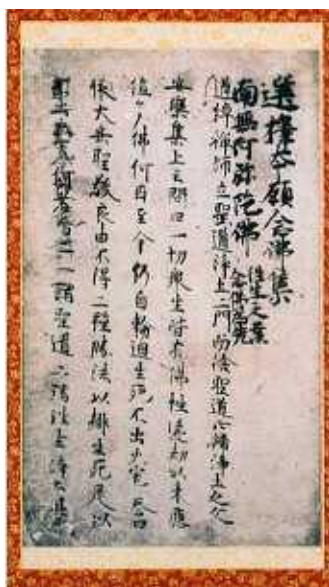 選擇本願念佛集
南無阿弥陀佛
往生之業
念佛為先
道綽禅師立聖道浄土二門而捨聖道正歸浄土之文
安樂集上云問曰一切衆生皆有佛性遠劫以来應
値多佛何因至今仍自輪廻生死不出火宅答曰
依大乗聖教良由不得二種勝法以排生死是以
不出火宅何者為二一謂聖道二謂往生浄土